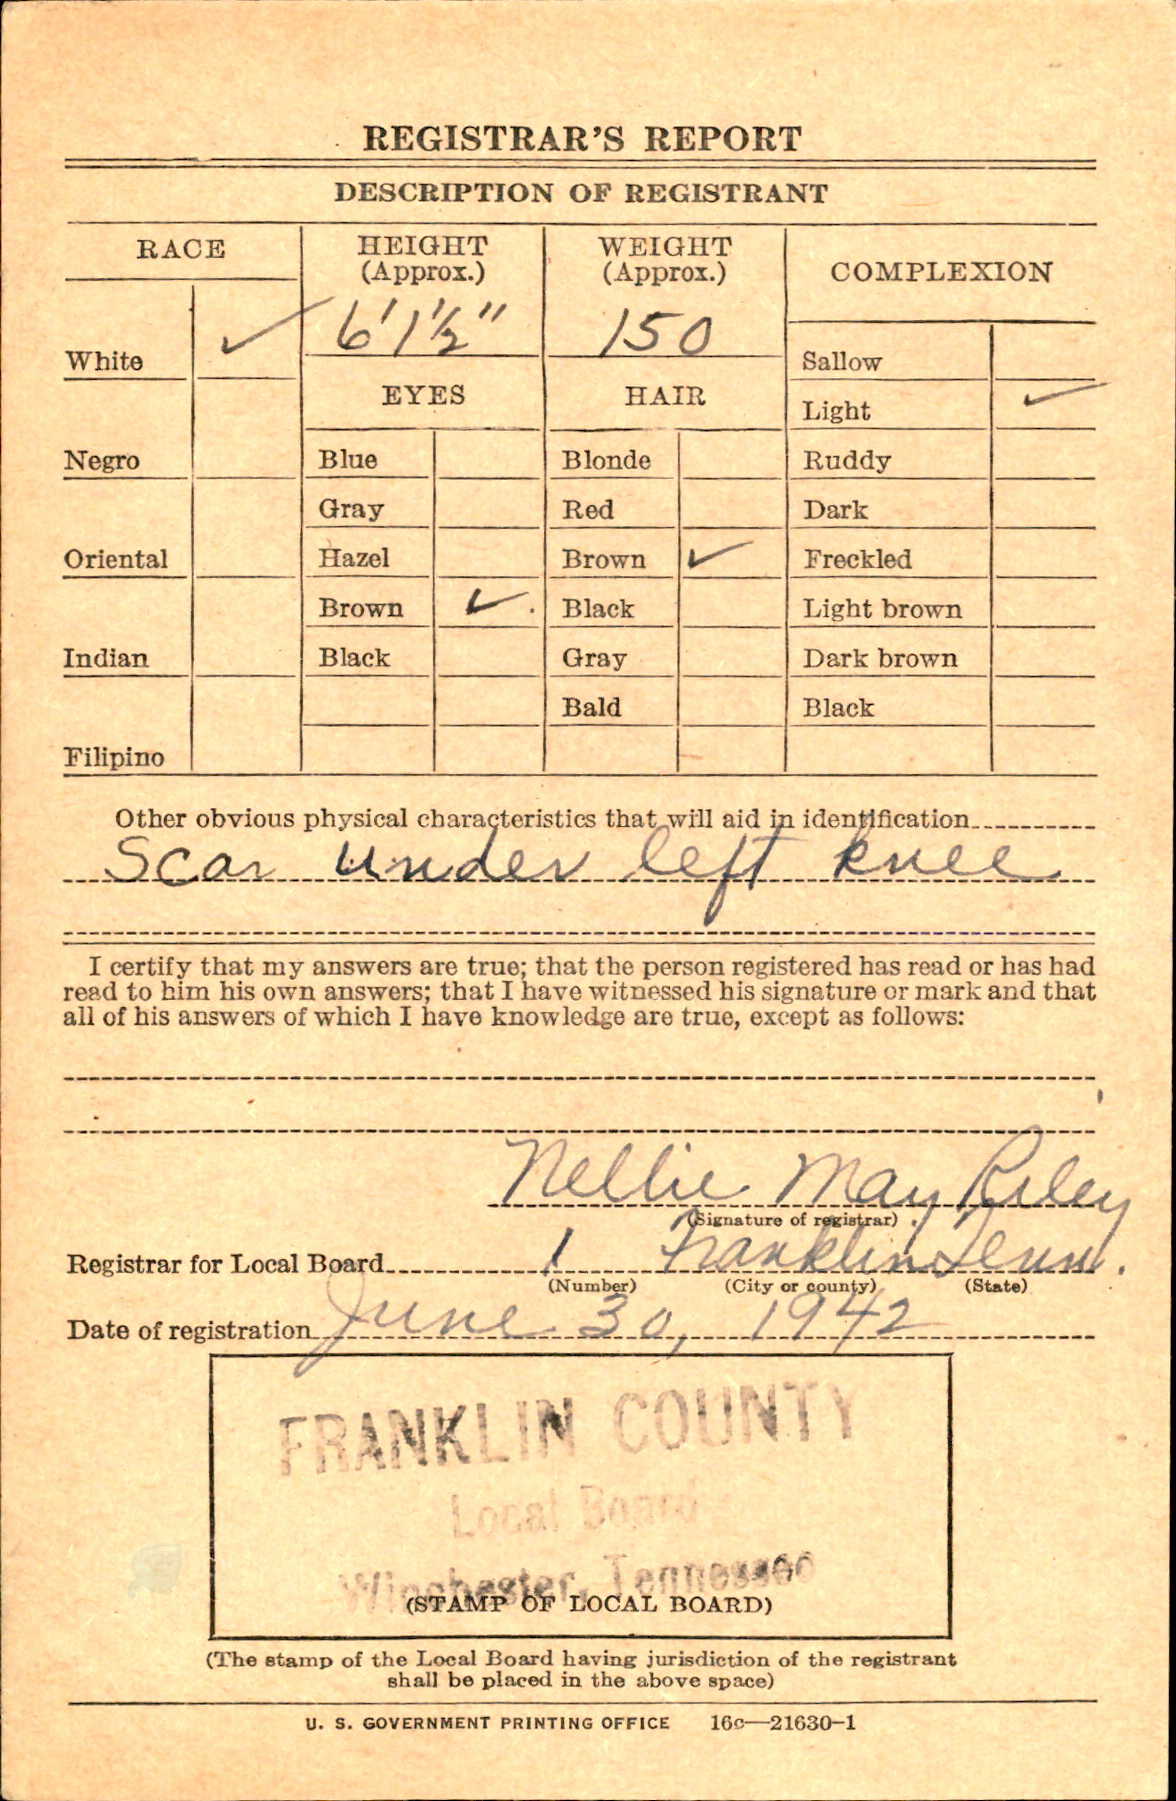 REGISTRAR'S REPORT
DESCRIPTION OF REGISTRANT
RACE
HEIGHT
(Approx.)
WEIGHT
(Approx.)
COMPLEXION
6' 1 1/2"
150
White ✓
Sallow
EYES
HAIR
Light ✓
Negro
Blue
Blonde
Ruddy
Gray
Red
Dark
Oriental
Hazel
Brown ✓
Freckled
Brown ✓
Black
Light brown
Indian
Black
Gray
Dark brown
Bald
Black
Filipino
Other obvious physical characteristics that will aid in identification
Scar under left knee
I certify that my answers are true; that the person registered has read or has had
read to him his own answers; that I have witnessed his signature or mark and that
all of his answers of which I have knowledge are true, except as follows:
Nellie May Riley
(Signature of registrar)
Registrar for Local Board 1 Franklin Tenn.
(Number) (City or county) (State)
Date of registration June 30, 1942
FRANKLIN COUNTY
Local Board
Winchester, Tennessee
(STAMP OF LOCAL BOARD)
(The stamp of the Local Board having jurisdiction of the registrant
shall be placed in the above space)
U. S. GOVERNMENT PRINTING OFFICE 16c—21630-1